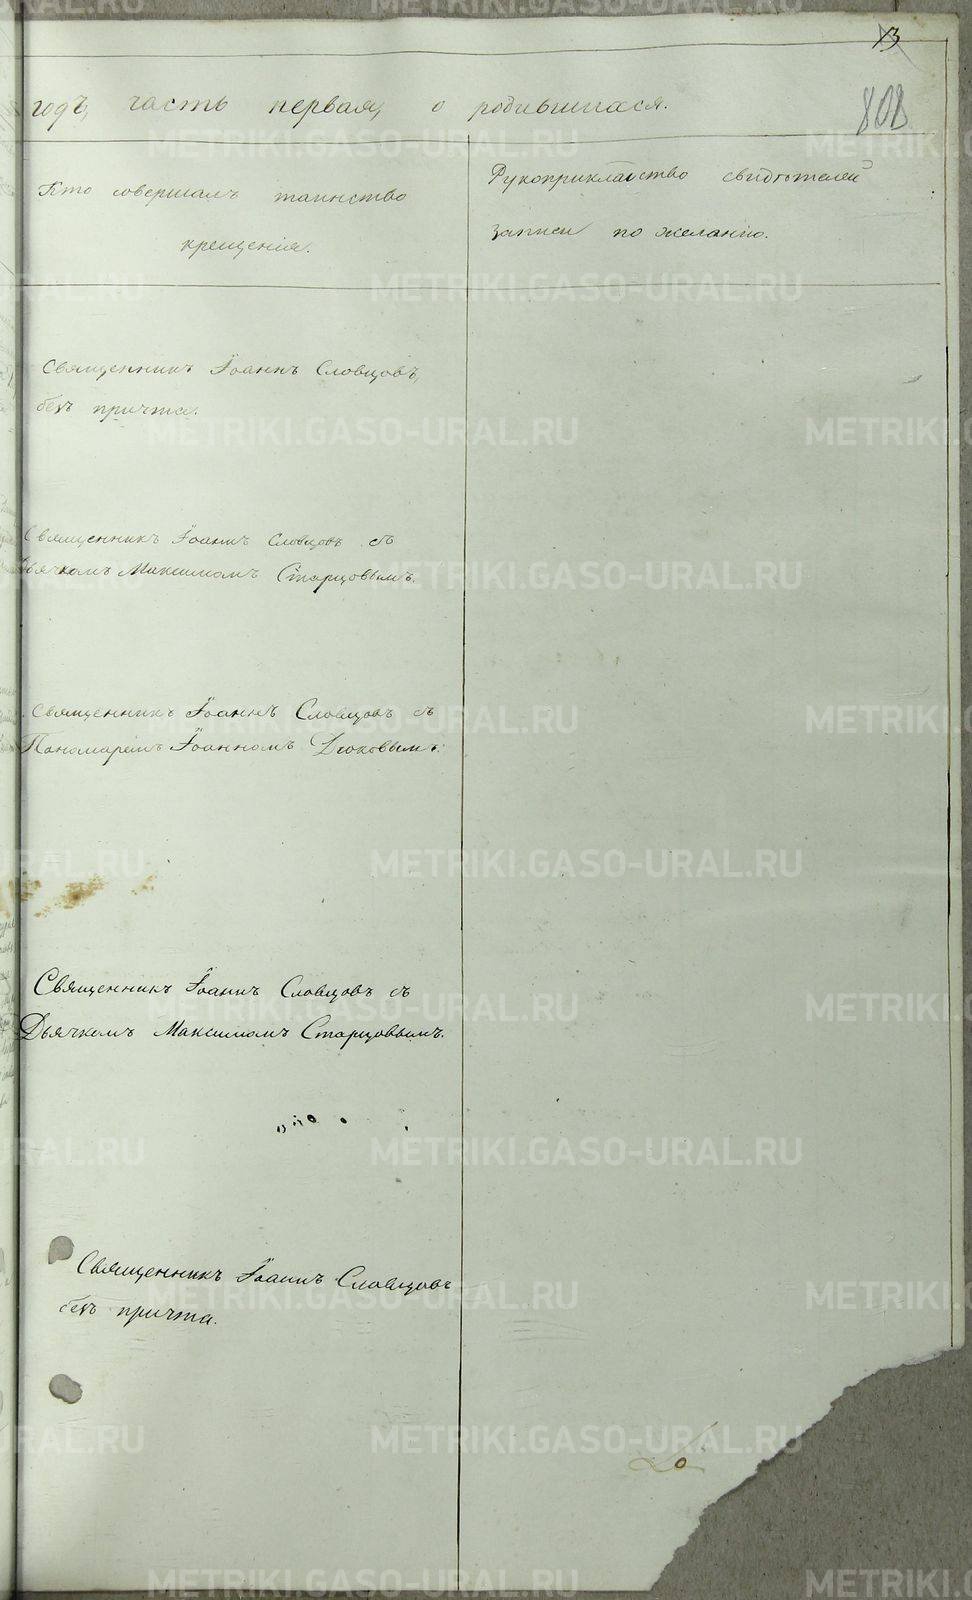 13
808
годъ, часть первая, о родившихся.
Кто совершалъ таинство
крещенія.
Рукоприкладство свидѣтелей
записи по желанію.
Священникъ Іоаннъ Словцовъ,
безъ причта.
Священникъ Іоаннъ Словцовъ съ
Дьячкомъ Максимомъ Старцовымъ.
Священникъ Іоаннъ Словцовъ съ
Пономаремъ Іоанномъ
Священникъ Іоаннъ Словцовъ съ
Дьячкомъ Максимомъ Старцовымъ.
Священникъ Іоаннъ Словцовъ
безъ причта.
METRIKI.GASO-URAL.RU